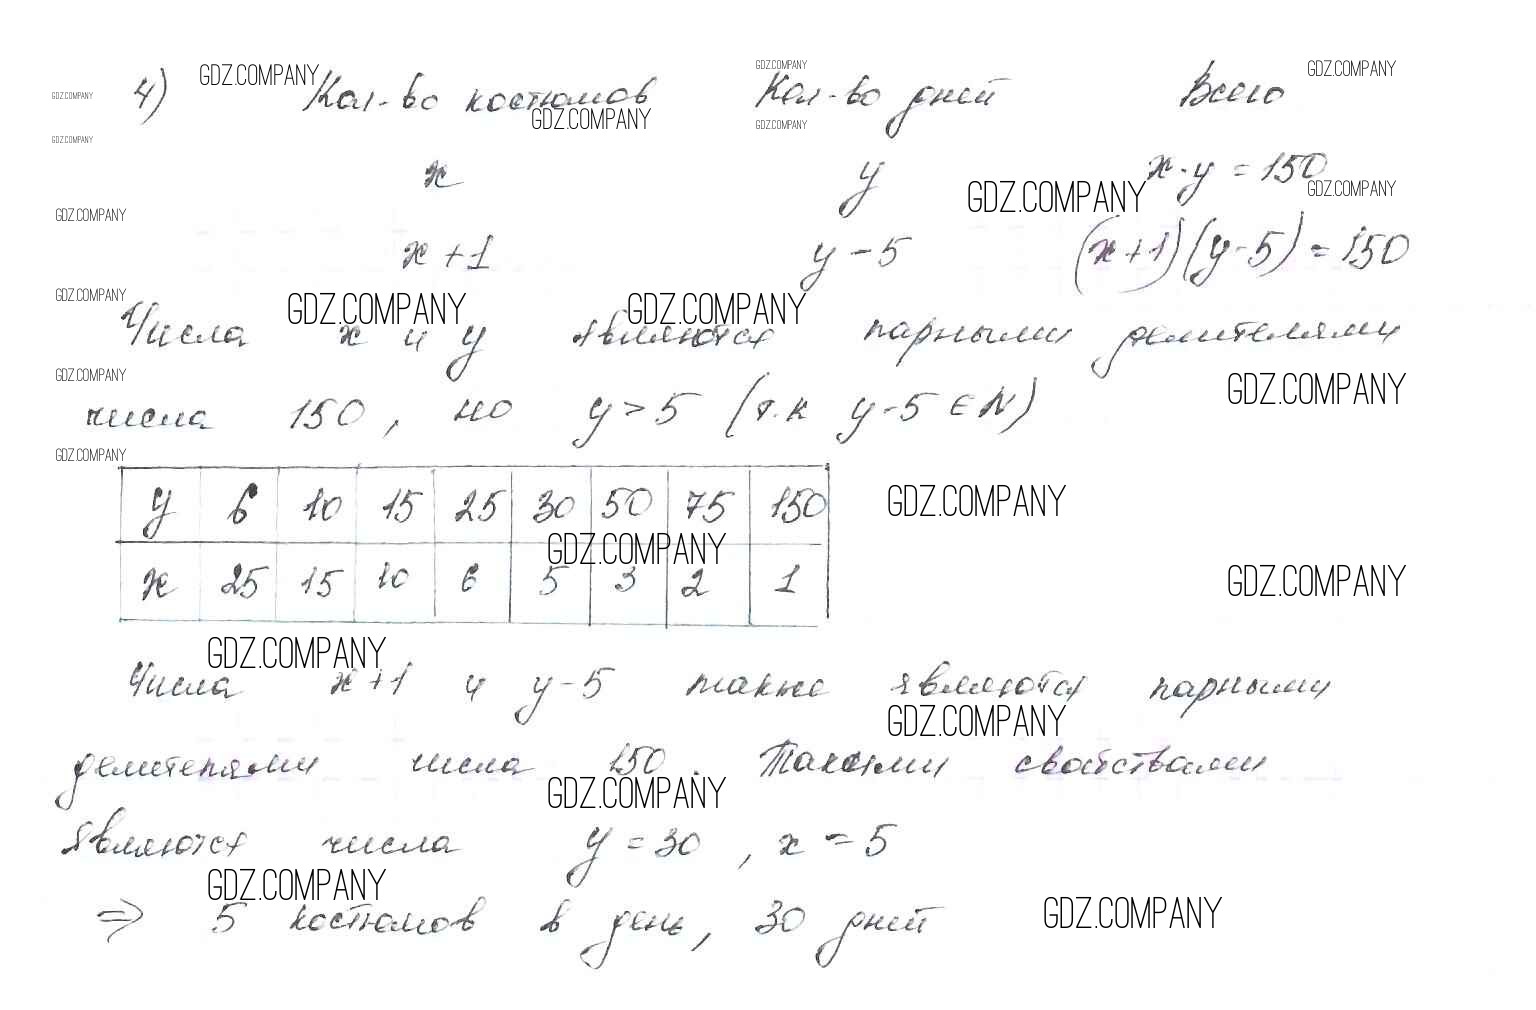 GDZ.COMPANY GDZ.COMPANY GDZ.COMPANY GDZ.COMPANY
4) Кол-во костюмов Кол-во дней Всего
GDZ.COMPANY GDZ.COMPANY GDZ.COMPANY
x y x·y = 150
GDZ.COMPANY GDZ.COMPANY GDZ.COMPANY
x+1 y-5 (x+1)(y-5)=150
GDZ.COMPANY GDZ.COMPANY GDZ.COMPANY
Числа x и y являются парными делителями
GDZ.COMPANY GDZ.COMPANY
числа 150, но y>5 (т.к y-5∈N)
GDZ.COMPANY
y 6 10 15 25 30 50 75 150
GDZ.COMPANY
GDZ.COMPANY
x 25 15 10 6 5 3 2 1
GDZ.COMPANY
GDZ.COMPANY
Числа x+1 и y-5 также являются парными
GDZ.COMPANY
делителями числа 150. Такими свойствами
GDZ.COMPANY
являются числа y=30, x=5
GDZ.COMPANY
⇒ 5 костюмов в день, 30 дней
GDZ.COMPANY